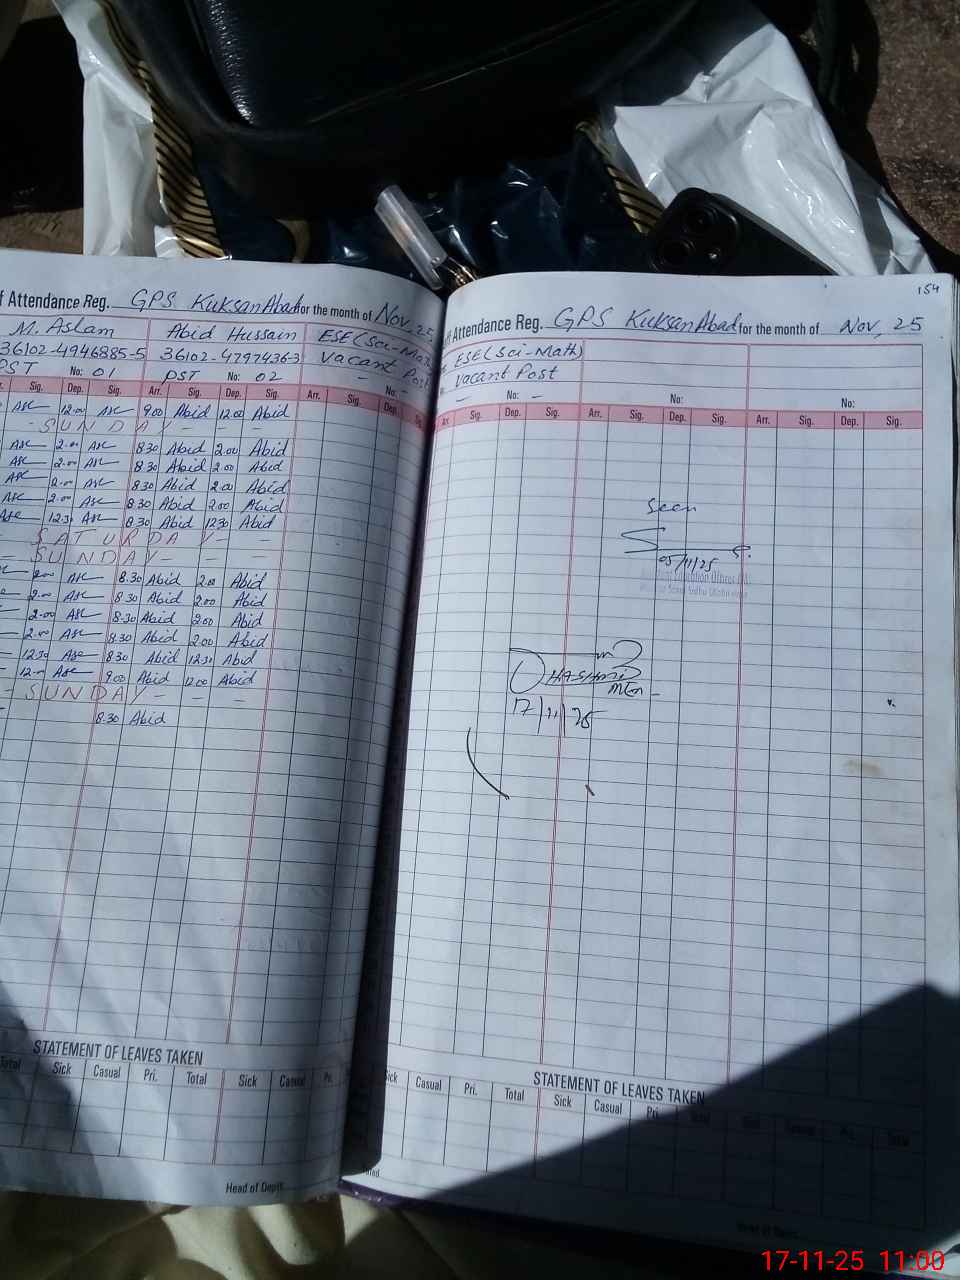 f Attendance Reg. GPS KuksanAbad for the month of Nov, 25
M. Aslam Abid Hussain ESE(Sci-Math
36102-4946885-5 36102-4797436-3 Vacant Post
PST No: 01 PST No: 02 - No: -
Sig. Dep. Sig. Arr. Sig. Dep. Sig. Arr. Sig. Dep. Sig
12.00 9.00 Abid 12.00 Abid
- SUNDAY - - -
2.00 8.30 Abid 2.00 Abid
2.00 8.30 Abid 2.00 Abid
2.00 8.30 Abid 2.00 Abid
2.00 8.30 Abid 2.00 Abid
12.30 8.30 Abid 12.30 Abid
- SATURDAY - - -
- SUNDAY - - -
2.00 8.30 Abid 2.00 Abid
2.00 8.30 Abid 2.00 Abid
2.00 8.30 Abid 2.00 Abid
2.00 8.30 Abid 2.00 Abid
12.30 8.30 Abid 12.30 Abid
12.00 9.00 Abid 12.00 Abid
- SUNDAY - - -
8.30 Abid
STATEMENT OF LEAVES TAKEN
Total Sick Casual Pri. Total Sick Casual Pri.
Head of Deptt.
154
Attendance Reg. GPS KuksanAbad for the month of Nov, 25
ESE(Sci-Math)
Vacant Post
- No: - No: No:
Arr. Sig. Dep. Sig. Arr. Sig. Dep. Sig. Arr. Sig. Dep. Sig.
Seen
05/11/25
HASHMI
17/11/25
STATEMENT OF LEAVES TAKEN
Sick Casual Pri. Total Sick Casual Pri. Total Sick Casual Pri. Total
17-11-25 11:00